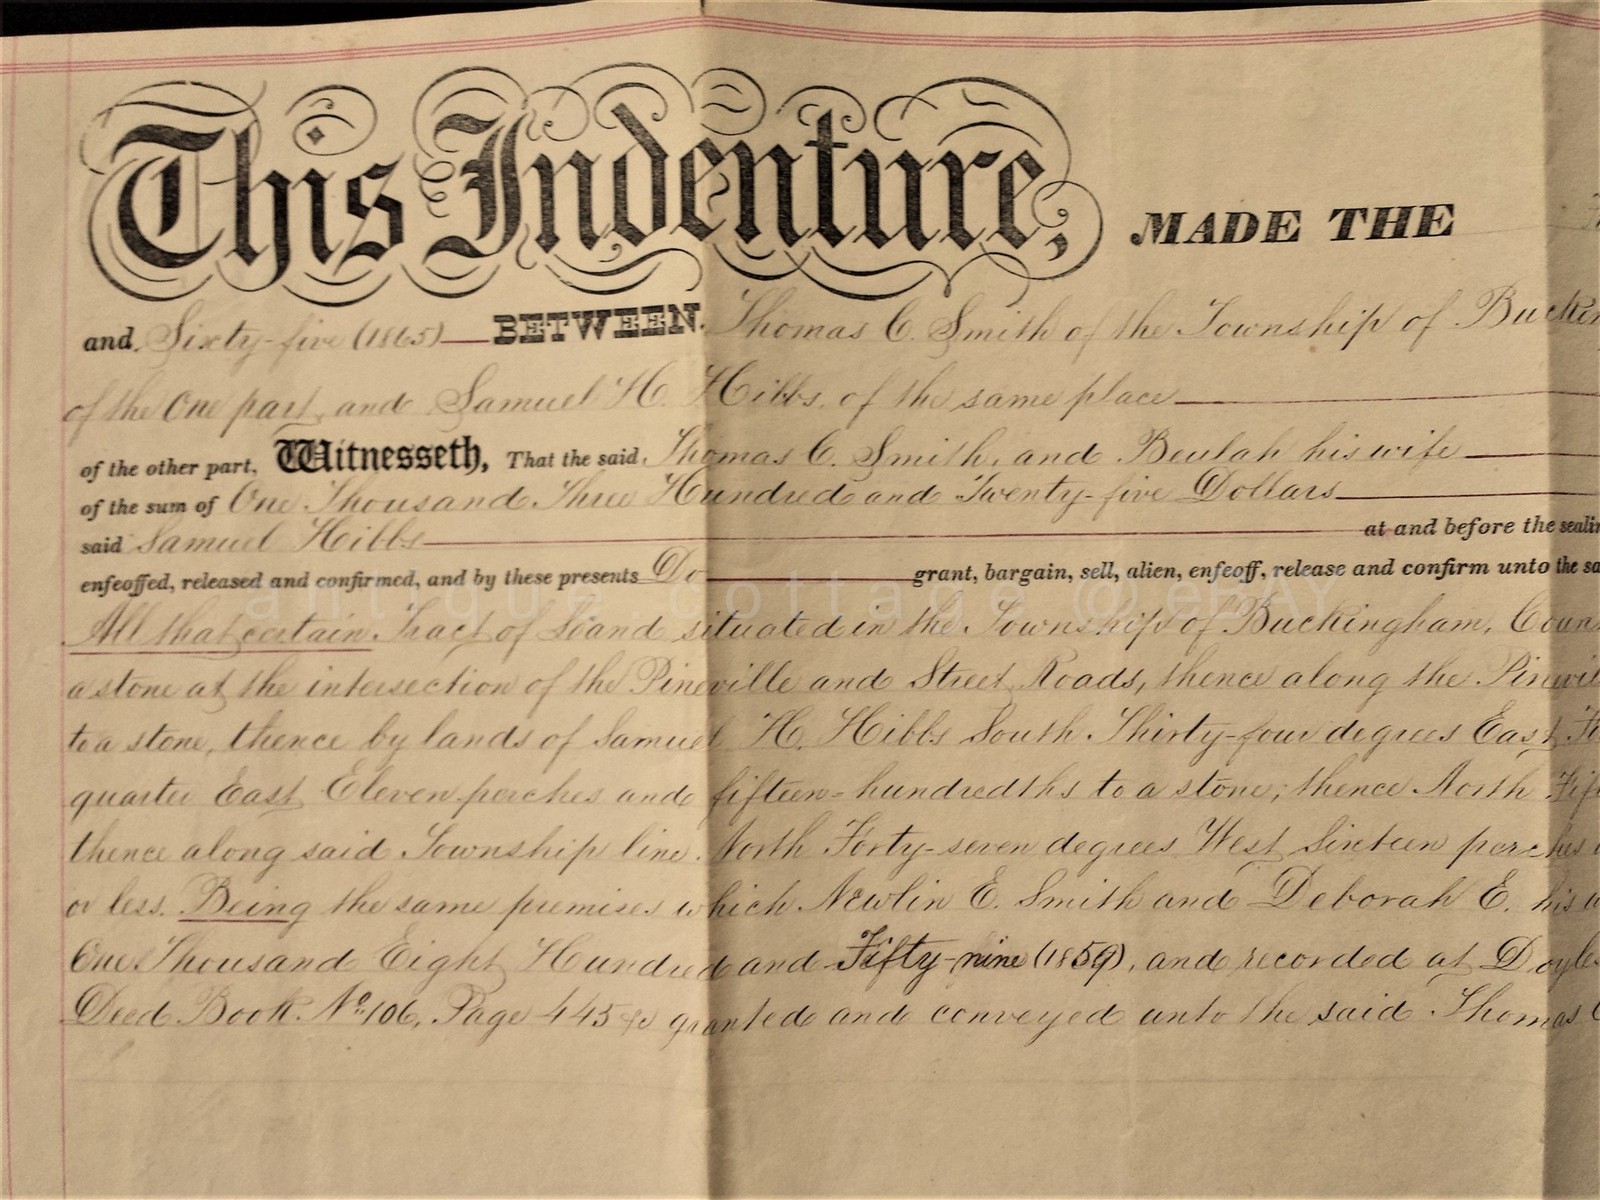 This Indenture, MADE THE
and Sixty-five (1865) BETWEEN Thomas C. Smith of the Township of Buckin
of the One part, and Samuel H. Hibbs, of the same place
of the other part, Witnesseth, That the said Thomas C. Smith, and Beulah his wife
of the sum of One Thousand Three Hundred and Twenty-five Dollars
said Samuel Hibbs at and before the sealin
enfeoffed, released and confirmed, and by these presents Do grant, bargain, sell, alien, enfeoff, release and confirm unto the sa
antique cottage @ eBAY
All that certain Tract of Land situated in the Township of Buckingham, Coun
a stone at the intersection of the Pineville and Street Roads, thence along the Pinevil
to a stone, thence by lands of Samuel H. Hibbs South Thirty-four degrees East
quarter East Eleven perches and fifteen-hundredths to a stone; thence North Fif
thence along said Township line North Forty-seven degrees West Sixteen perches
or less. Being the same premises which Newlin E. Smith and Deborah E. his w
One Thousand Eight Hundred and Fifty-nine (1859), and recorded at Doyles
Deed Book No. 106, Page 445 &c granted and conveyed unto the said Thomas C